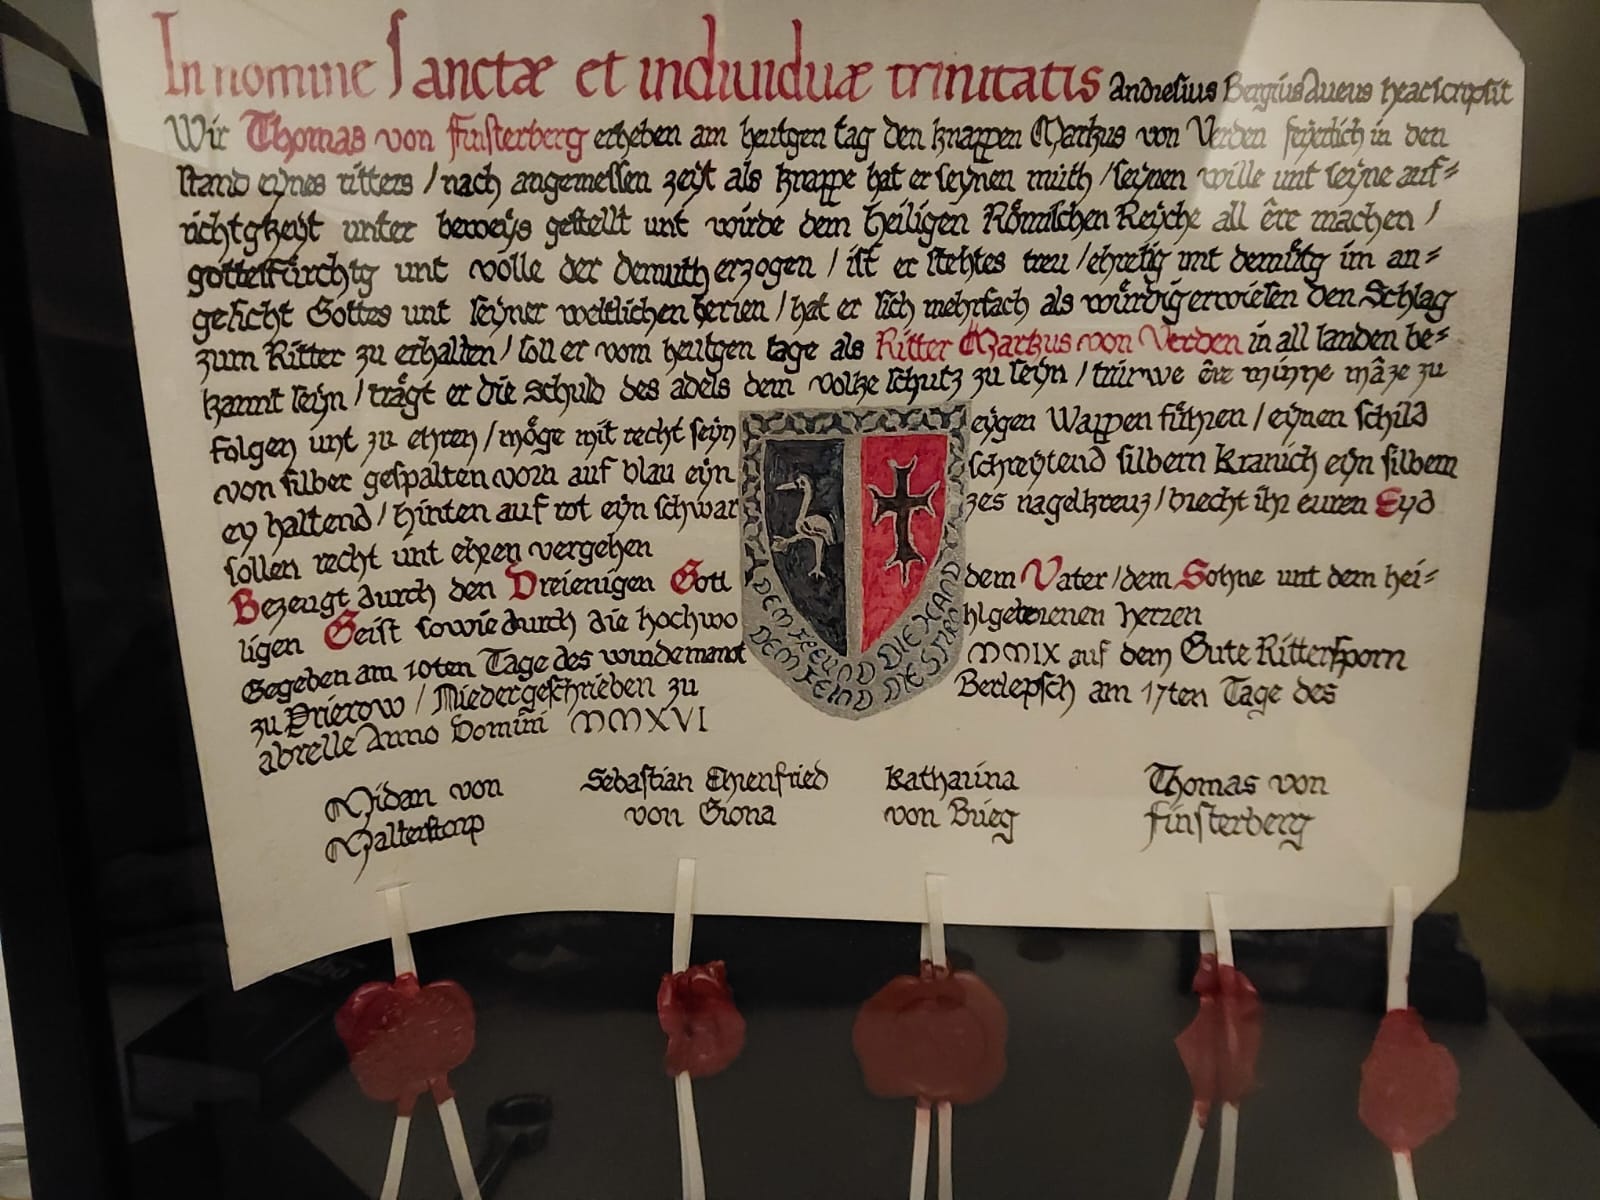 In nomine Sanctæ et individuæ trinitatis Andresius Bergius Aueus heac scripsit
Wir Thomas von Finsterberg erheben am heutgen tag den knappen Markus von Verden feyerlich in den
stand eynes ritters / nach angemessen zeyt als knappe hat er seynen muth / seynen wille unt seyne auf=
richtgkeyt unter beweys gestellt unt würde dem Heiligen Römischen Reyche all êre machen /
gottesfürchtg unt volle der demuth erzogen / ist er stehtes treu / ehretig unt demütg im an=
gesicht Gottes unt seyner weltlichen herren / hat er sich mehrfach als würdig erwiesen den Schlag
zum Ritter zu erhalten / soll er vom heutgen tage als Ritter Markus von Verden in all landen be=
kannt seyn / trägt er die schuld des adels dem volke schutz zu seyn / trürwe êre minne mâze zu
folgen unt zu ehren / möge mit recht seyn eygen Wappen führen / eynen schild
von silber gespalten vorn auf blau eyn schreytend silbern Kranich eyn silbern
ey haltend / hinten auf rot eyn schwar zes nagelkreuz / brecht ihr euren Eyd
sollen recht unt ehren vergehen
Bezeugt durch den Dreienigen Gott dem Vater / dem Sohne unt dem hei=
ligen Geist sowie durch die hochwo hlgeborenen herren
Gegeben am 10ten Tage des windemanot MMIX auf dem Gute Rittersporn
zu Prierow / Niedergeschrieben zu Berlepsch am 17ten Tage des
abrelle Anno Domini MMXVI
DEM FREUND DIE HAND
DEM FEIND DIE STIRN
Midan von Malterstorp
Sebastian Ehrenfried von Grona
Katharina von Brieg
Thomas von Finsterberg